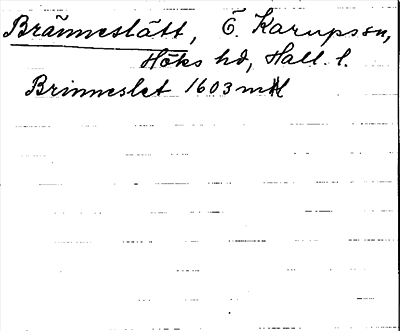 Bränneslätt, Ö. Karups sn,
Höks hd, Hall. l.
Brinneslet 1603 mtl